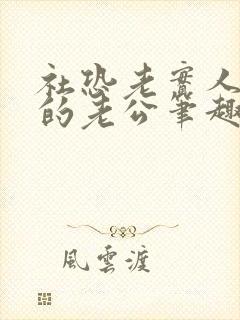 社恐老實人
的老公筆趣
風雲渡